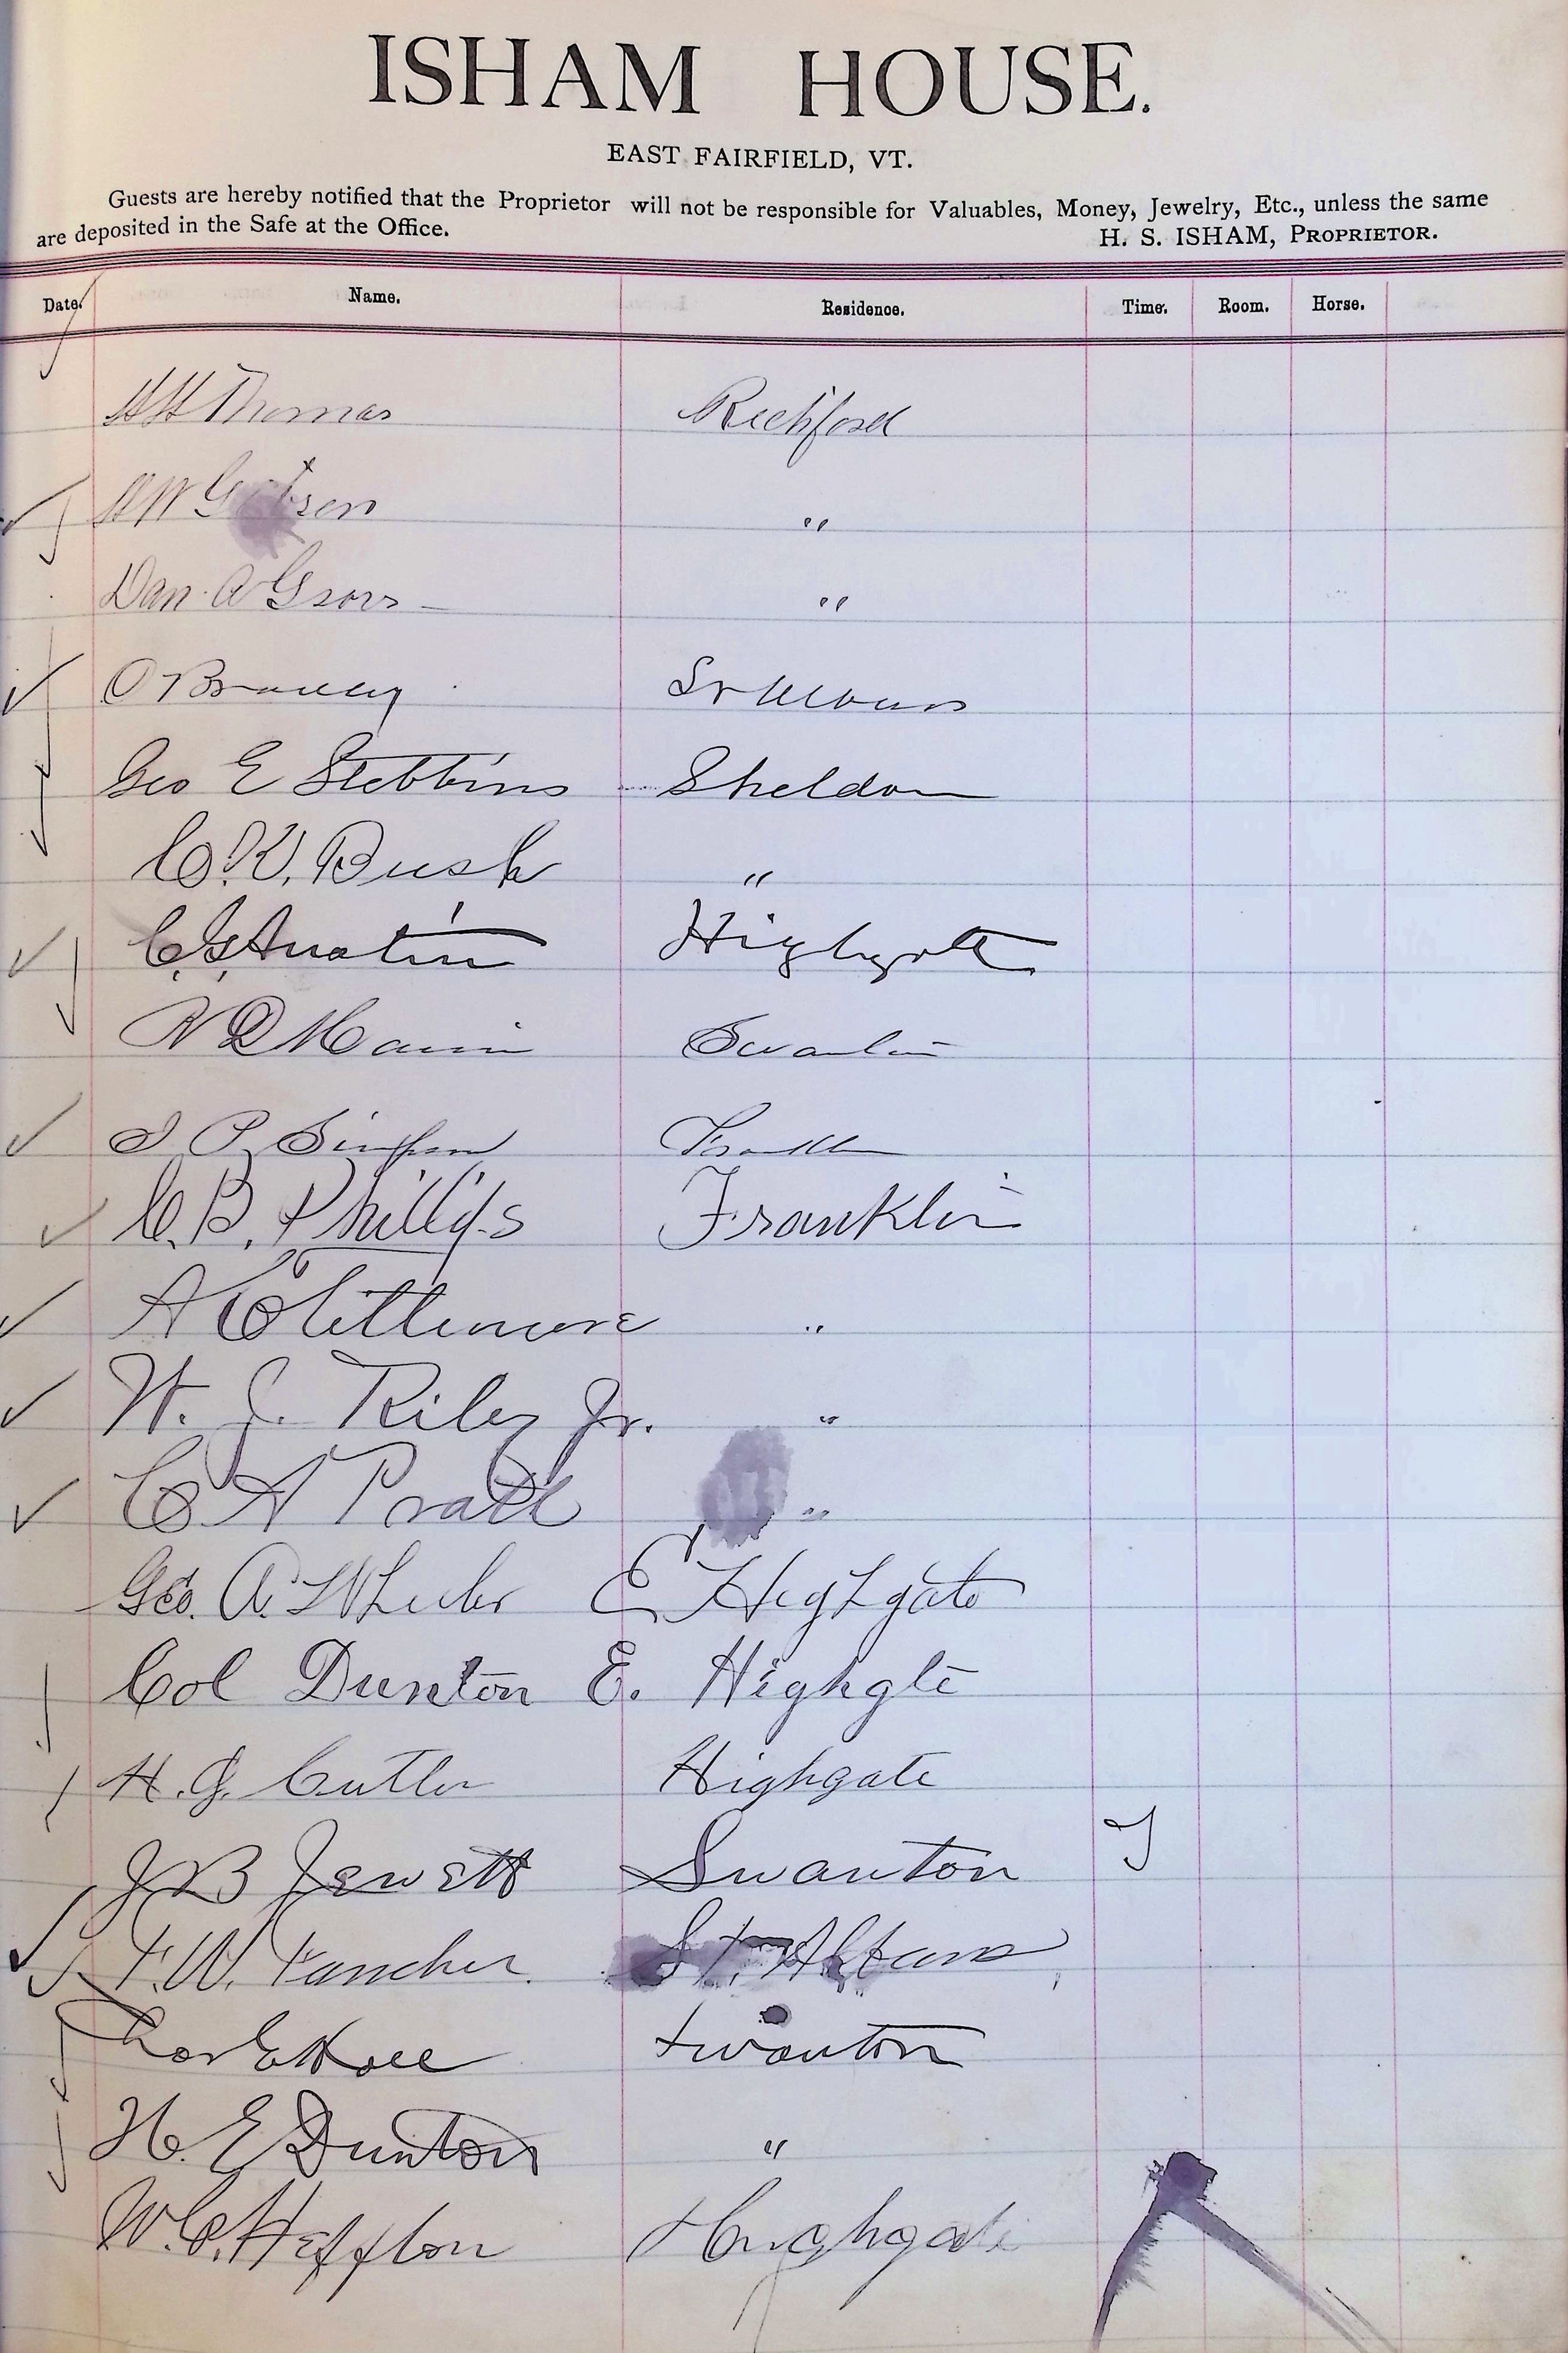 ISHAM HOUSE.
EAST FAIRFIELD, VT.
Guests are hereby notified that the Proprietor will not be responsible for Valuables, Money, Jewelry, Etc., unless the same
are deposited in the Safe at the Office.
H. S. ISHAM, PROPRIETOR.
Date. Name. Residence. Time. Room. Horse.
HH Thomas Richford
HW "
Dan. A "
O St Albans
Geo E Stebbins Sheldon
C. K. Bush "
C. G. Austin Highgate
Swanton
J P Simpson Franklin
C. B. Phillips Franklin
A C "
W. J. Riley Jr. "
C A Pratt "
Geo. A. Wheeler E Highgate
Col Dunton E. Highgte
H. G. Cutler Highgate
J B Jewett Swanton
F. W. Fancher. St. Albans
Chas E Hall Swanton
H. E Dunton "
W. C. Hefflon Highgate